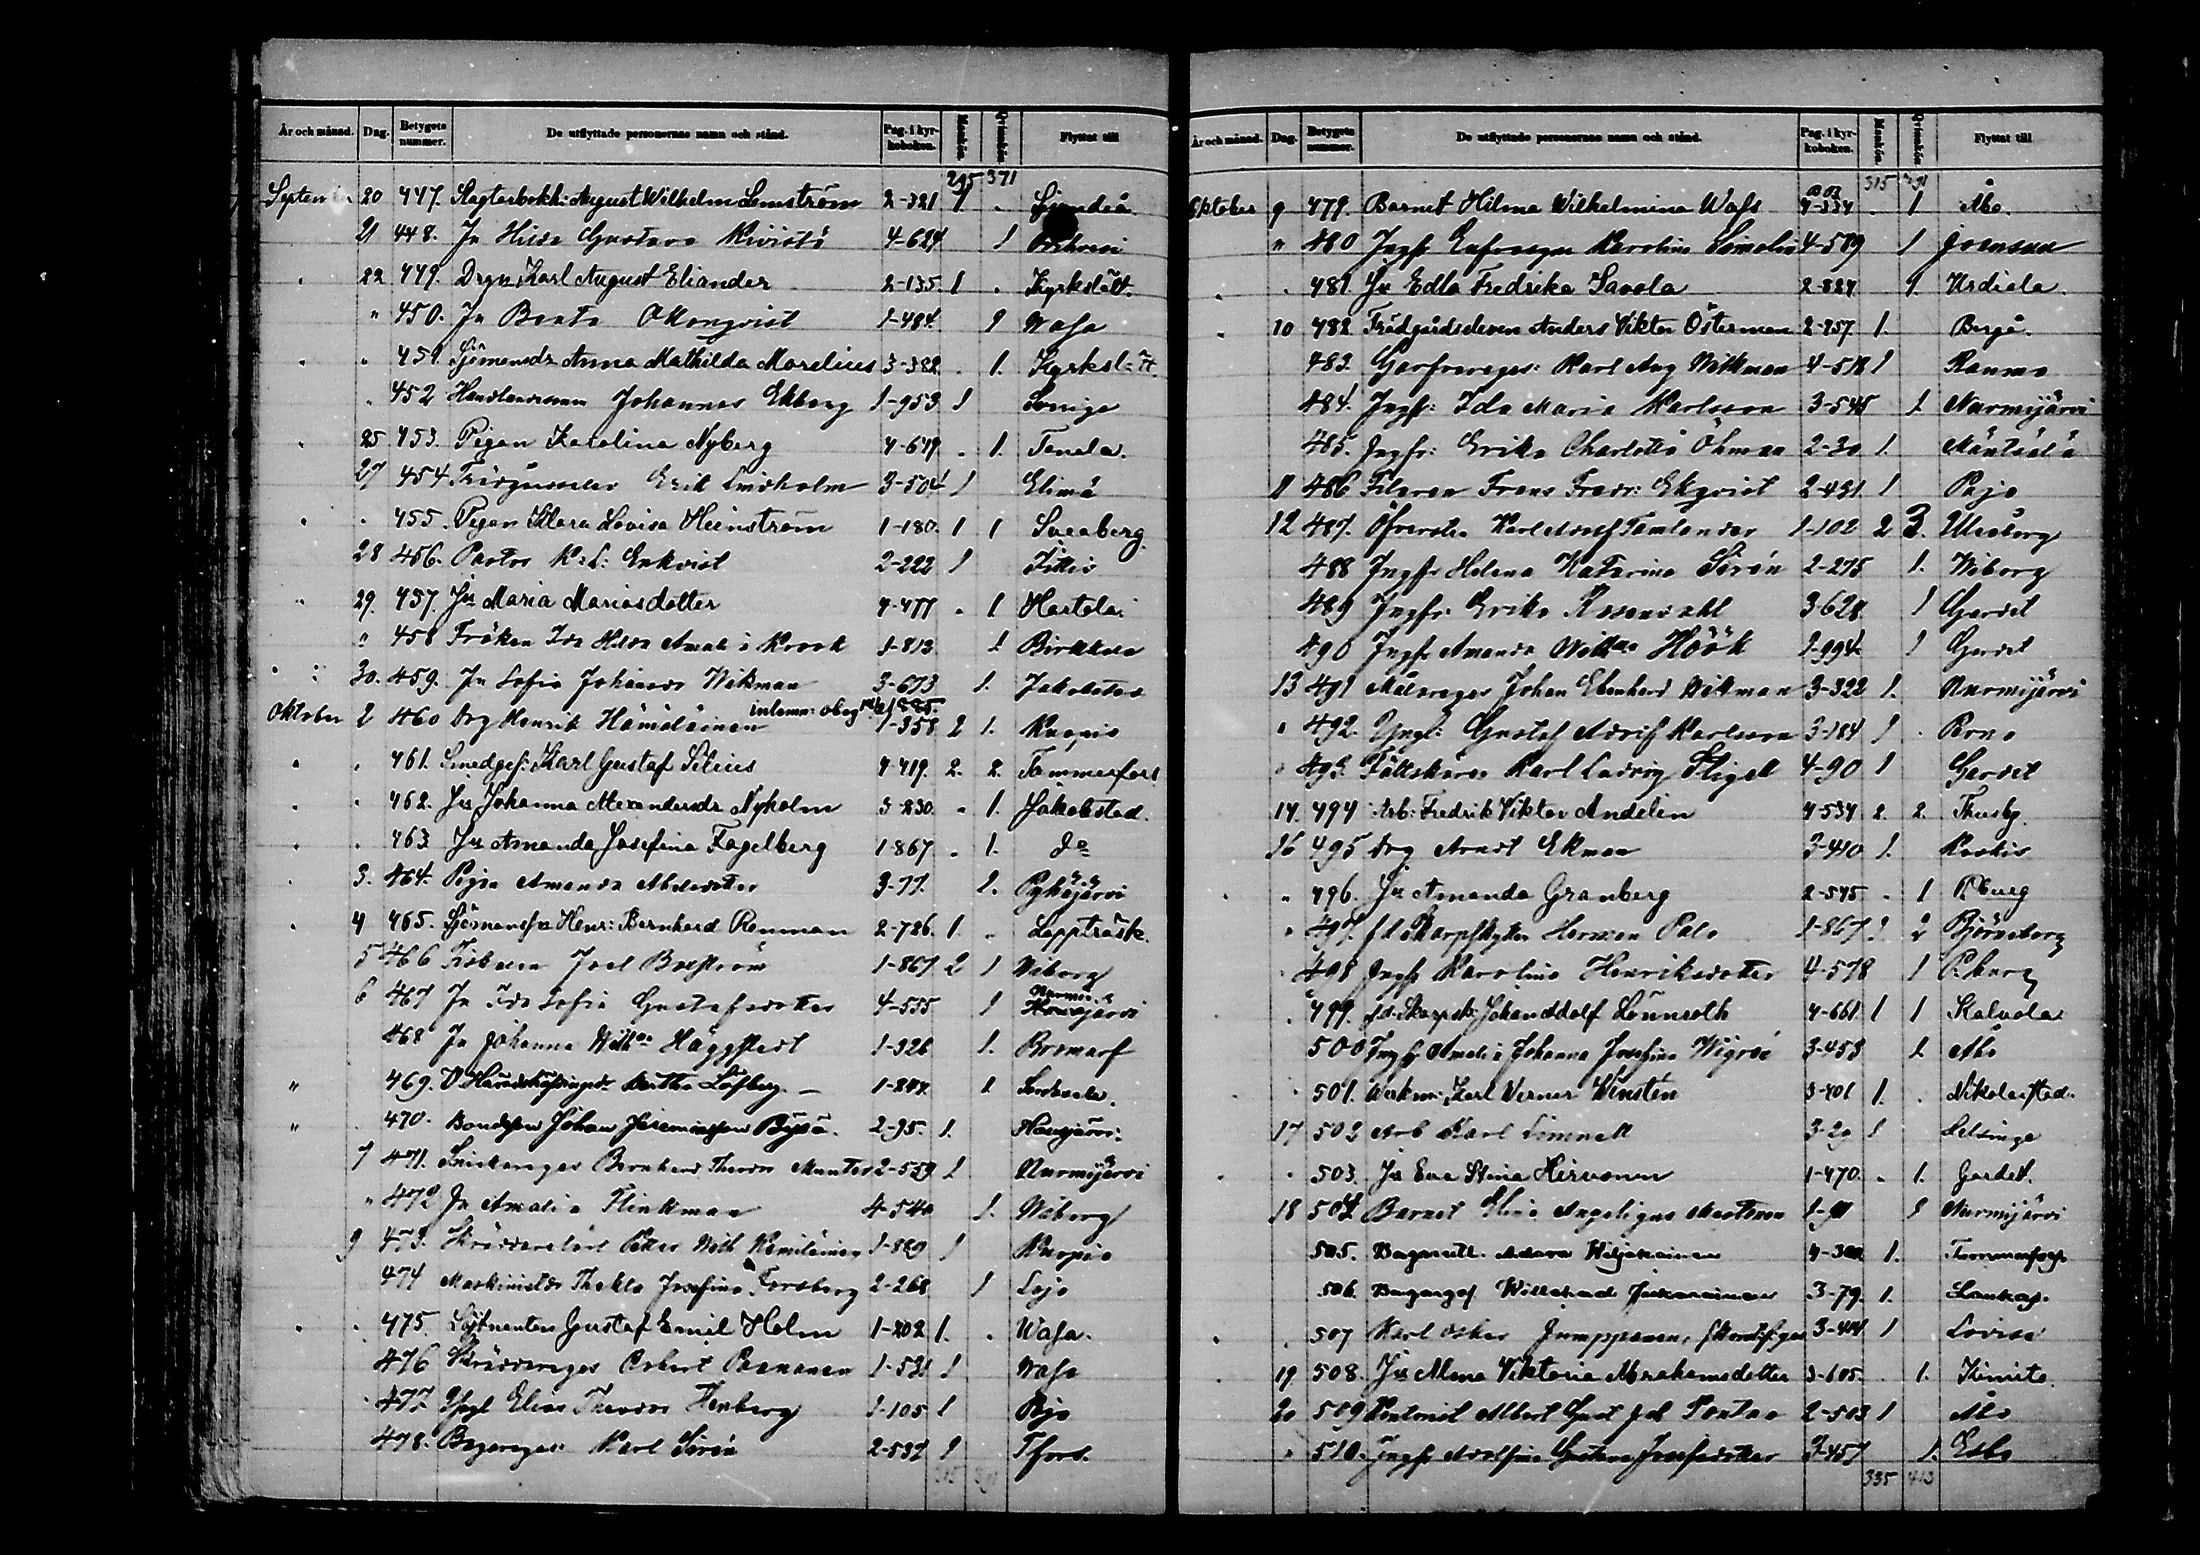 År och månad. Dag. Betygets nummer. De utflyttade personernas namn och stånd. Pag. i kyrkoboken. Mankön. Qvinkön. Flyttat till
295 371
September 20 447. August Wilhelm Lemström 2-321 1. Sjundeå.
21 448. Jn Hilda Gustava Kivistö 4-624 1
22 449. Drgn Karl August Eliander 2-135. 1 Kyrkslätt.
" 450. Jn Benta 1-484. 1 Wasa
" 451. Sjömansdr Anna Mathilda Morelius 3-382 1. Kyrkslätt.
452 Johannes Ekberg 1-953 1 Sverige
25 453. Pigan Karolina Nyberg 4-649 1. Tenala.
27 454 Erik Lindholm 3-504 1 Elimä
455. Pigan Klara Lovisa Heinström 1-180. 1 1 Sveaborg.
28 456. Pastor K: L: Enkvist 2-222 1
29. 457. Jn Maria Mariasdotter 4-477 1 Hartola.
" 458 Fröken Ida Hilda Amalia Krook 1-812 1 Birkkala
30. 459. Jn Sofia Johansdr Wikman 3-673 1. Jakobstad
Oktober 2 460 Drg Henrik Hämäläinen 1-358 2 1. Kuopio
461. Smedges: Karl Gustaf Silius 4-419. 2. 2. Tammerfors
462. Jn Johanna Alexandersdr Nyholm 3-230. 1. Jakobstad.
463 Jn Amanda Josefina Fagelberg 1-867 1. do
3. 464. Pigan Amanda 3-77. 1. Pyhäjärvi
4 465. Sjömansfn Henr: Bernhard Renman 2-726. 1. Lappträsk.
5 466 Joel Boström 1-867 2 1 Wiborg
6 467 Jn Ida Sofia Gustafsdotter 4-555 1
468 Jn Johanna Häggstedt 1-326 1. Bromarf
" 469. Bertha Löfberg. 1
" 470. Bondeson Johan 2-95. 1. Hausjärvi.
7 471. Snickareges Bernhard Theodor Munter 2-559 1 Nurmijärvi
" 472 Jn Amalia Flinkman 4-540 1. Wiborg
9 473. 1-869 1 Kuopio
474 Maskinistdr Thekla Josefina Forsberg 2-268 1 Lojo
475. Löjtnanten Gustaf Emil Holm 1-202 1. Wasa.
476 Skräddareges Robert Paananen 1-531 1 Wasa
477 Yngl Elias Theodor Henberg 1-105 1
478. Bagareges: Karl Sirén 2-537 1 Tfors.
315 391
År och månad. Dag. Betygets nummer. De utflyttade personernas namn och stånd. Pag. i kyrkoboken. Mankön. Qvinkön. Flyttat till
315 391
Oktober 9 479. Barnet Hilma Wilhelmina Wass 4-334 1 Åbo.
" 480 Jngfr Eufrosyne Karolina Limelin 4-589 1 Joensuu
481. Jn Edla Fredrika Savola 2-824 1. Urdiala.
10 482 Trädgårdseleven Anders Viktor Österman 2-257. 1. Borgå.
483. Garfvareges: Karl Aug Wikman 4-518 1 Raumo
484. Jngfr: Ida Maria Karlsson 3-545 1 Nurmijärvi
485. Jngfr: Erika Charlotta Öhman 2-30 1. Mäntsälä
11 486 Frans Fredr: Ekqvist 2-431. 1 Pojo
12 487. Karl Adolf Tamlander 1-102 2 3. Uleåborg
488 Jngfr Helena Katarina Sirén 2-275 1. Wiborg
489 Jngfr: Erika Rosendahl 3-628 1 Gardet
490 Jngfr Amanda Höök 1-994. 1 Gardet
13 491 Målareges Johan Ebenhard Wikman 3-322 1. Nurmijärvi
492. Yngl: Gustaf Adolf Karlsson 3-184 1 Perno
493. Fältskären Karl Ludvig Stigell 4-90 1 Gardet
14. 494 Arb: Fredrik Viktor Andelin 4-534 2. 2. Thusby.
16 495 Drg Arndt Ekman 3-410 1.
" 496. Jn Amanda Granberg 2-545 1 P.burg
497. f.d. Skarpskytten Herman Palo 1-867 1 2 Björneborg
498 Jngfr Karolina Henriksdotter 4-578 1 P.burg
499. f.d. Skarpsk: Johan Adolf Lönnroth 4-661 1 1 Kalvola
500 Jngfr Amalia Johanna Josefina 3-453 1 Åbo
501. Werkm: Karl Verner Winstén 3-401 1. Nikolaistad.
17 502 Arb Karl Limnell 3-20 1 Helsinge
503. Jn Eva Stina Hirvonen 1-470. 1. Gardet.
18 504. Barnet 1-91 1 Nurmijärvi
505. 1. Tammerfors
506. 3-79. 1.
507 Karl Oskar Jumppanen, 3-404 1 Lovisa
19 508. Jn Alma Viktoria Abrahamsdotter 3-605. 1. Kimito
20 509 Albert 2-503 1 Åbo
" 510. Jngfr Adolfina Gustava Josefsdotter 3-457 1. Esbo
335 413